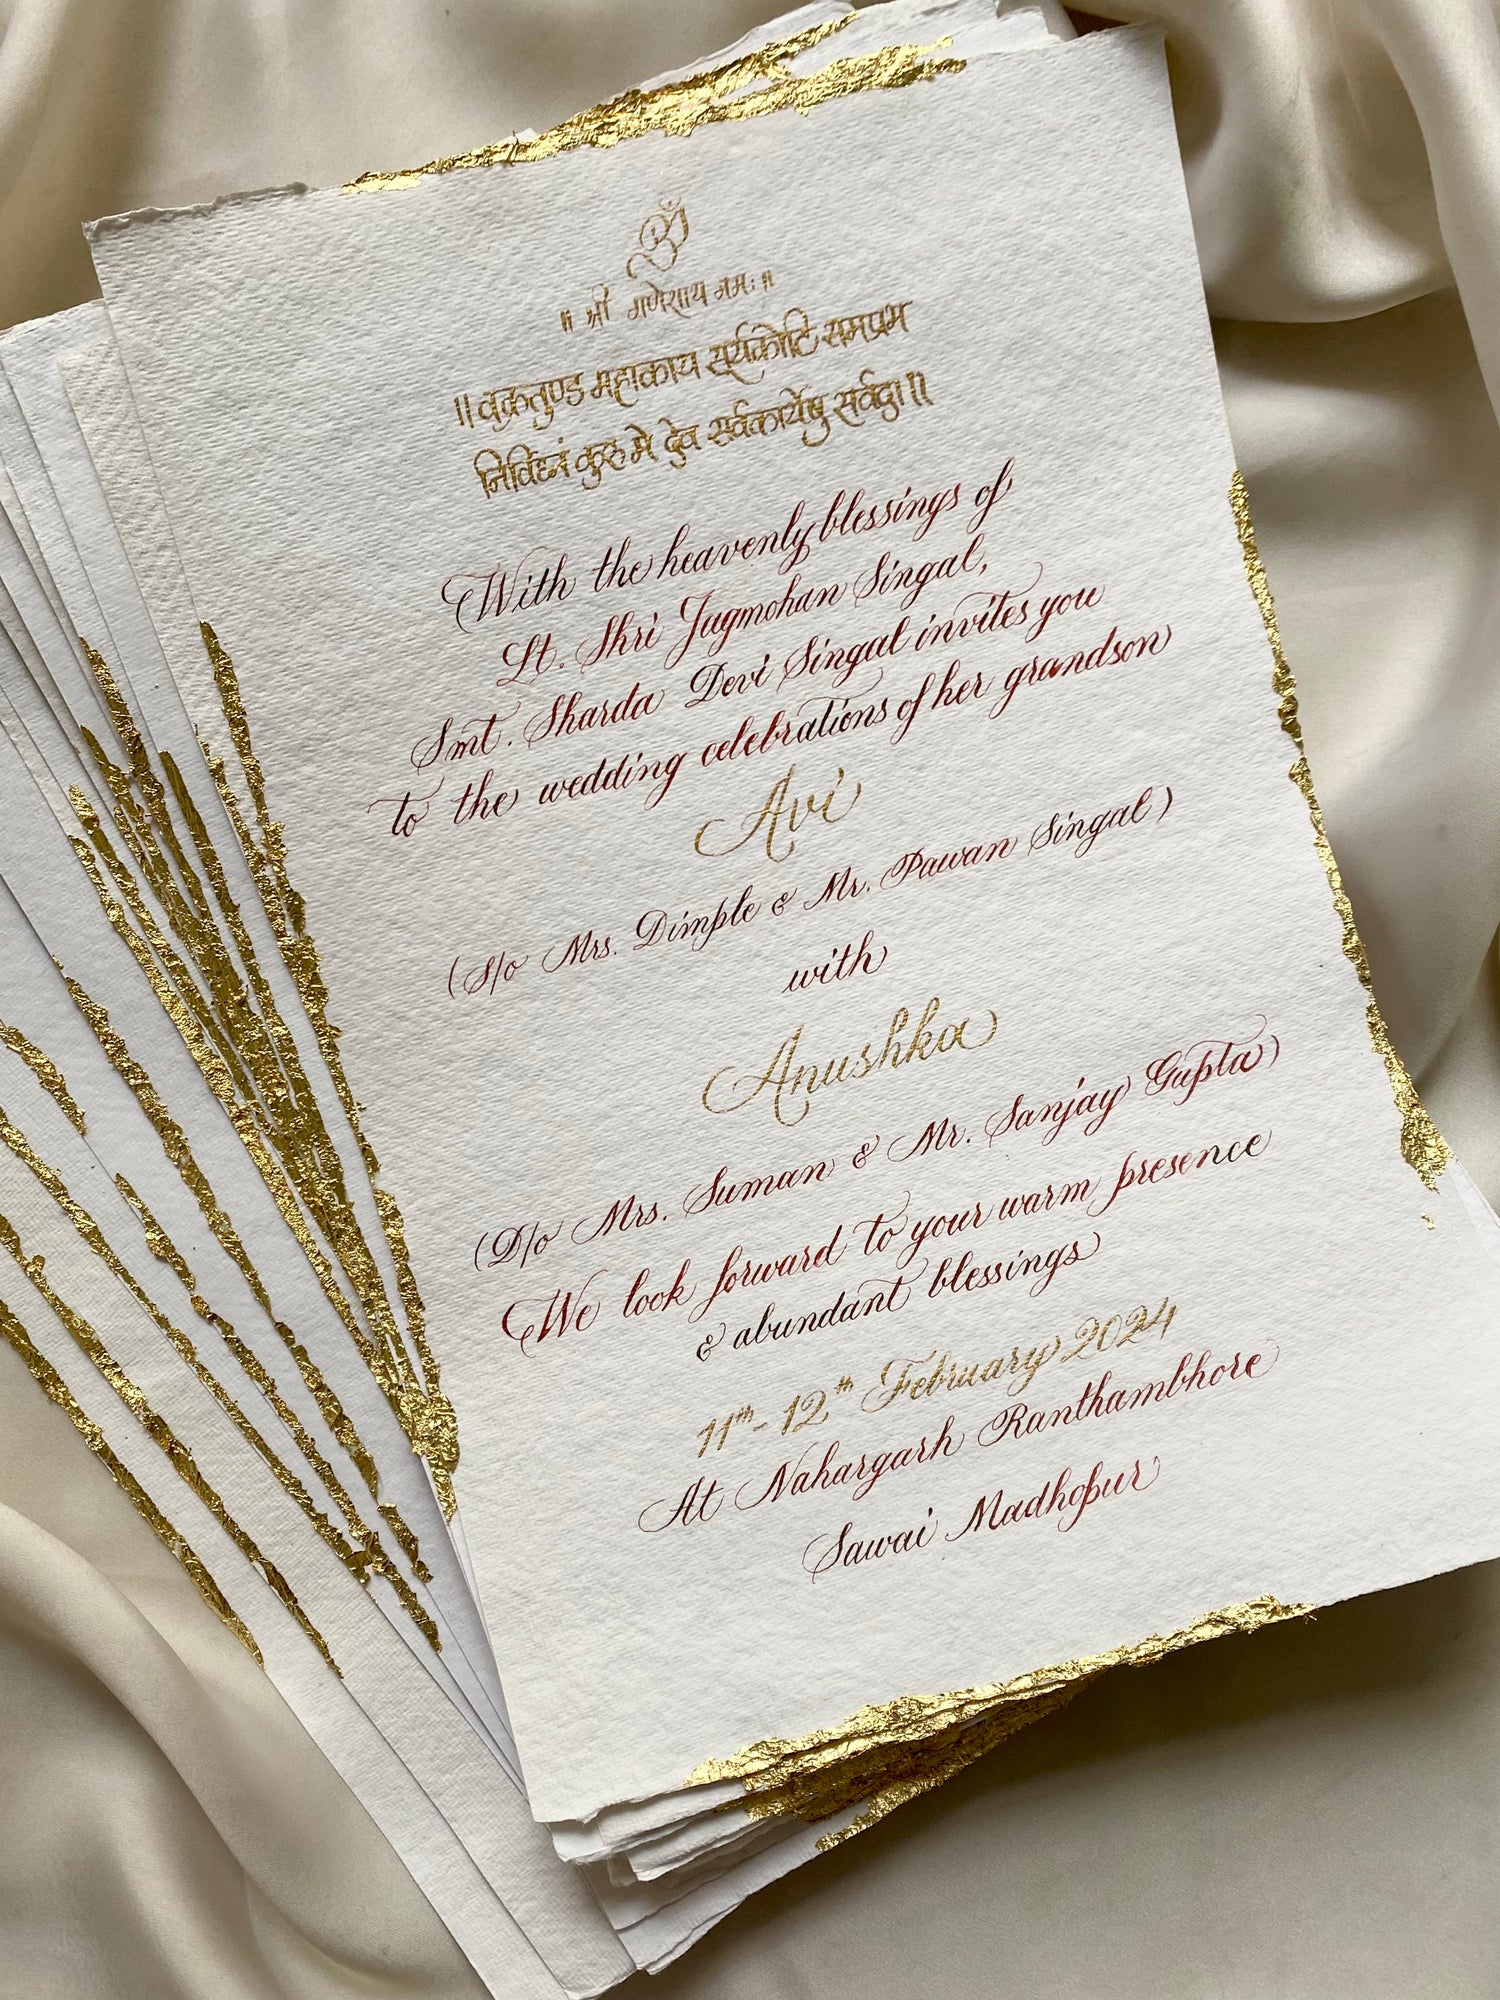 ॐ
॥ श्री गणेशाय नमः ॥
॥ वक्रतुण्ड महाकाय सूर्यकोटि समप्रभ
निर्विघ्नं कुरु मे देव सर्वकार्येषु सर्वदा ॥
With the heavenly blessings of
Lt. Shri Jagmohan Singal,
Smt. Sharda Devi Singal invites you
to the wedding celebrations of her grandson
Avi
(S/o Mrs. Dimple & Mr. Pawan Singal)
with
Anushka
(D/o Mrs. Suman & Mr. Sanjay Gupta)
We look forward to your warm presence
& abundant blessings
11th - 12th February 2024
At Nahargarh Ranthambhore
Sawai Madhopur